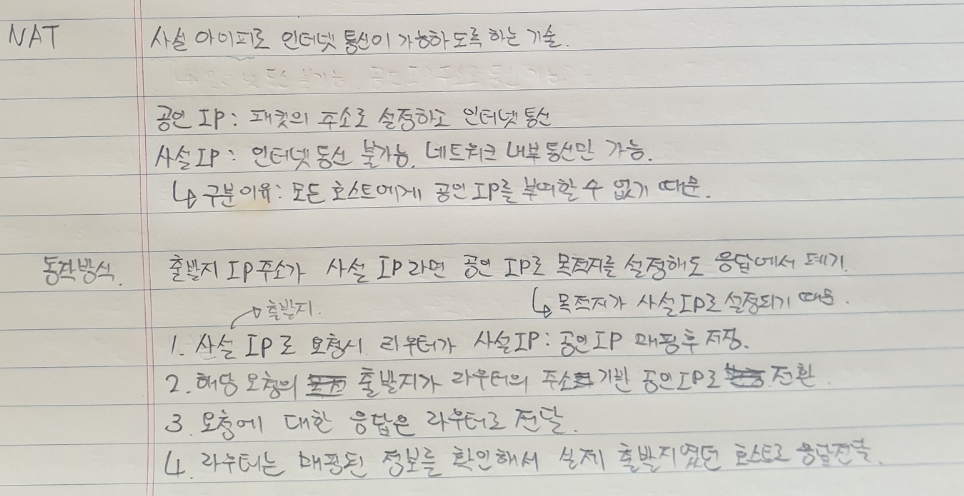 NAT 사설 아이피로 인터넷 통신이 가능하도록 하는 기술.
공인 IP : 패킷의 주소로 설정하고 인터넷 통신
사설 IP : 인터넷 통신 불가능. 네트워크 내부 통신만 가능.
↳ 구분이유 : 모든 호스트에게 공인 IP를 부여할 수 없기 때문.
동작방식. 출발지 IP주소가 사설 IP라면 공인 IP로 목적지를 설정해도 응답에서 폐기.
↳ 목적지가 사설IP로 설정되기 때문.
출발지.
1. 사설 IP로 요청시 라우터가 사설IP : 공인IP 매핑후 저장.
2. 해당 요청의 출발지가 라우터의 주소 기반 공인IP로 전환.
3. 요청에 대한 응답은 라우터로 전달.
4. 라우터는 매핑된 정보를 확인해서 실제 출발지였던 호스트로 응답전달.